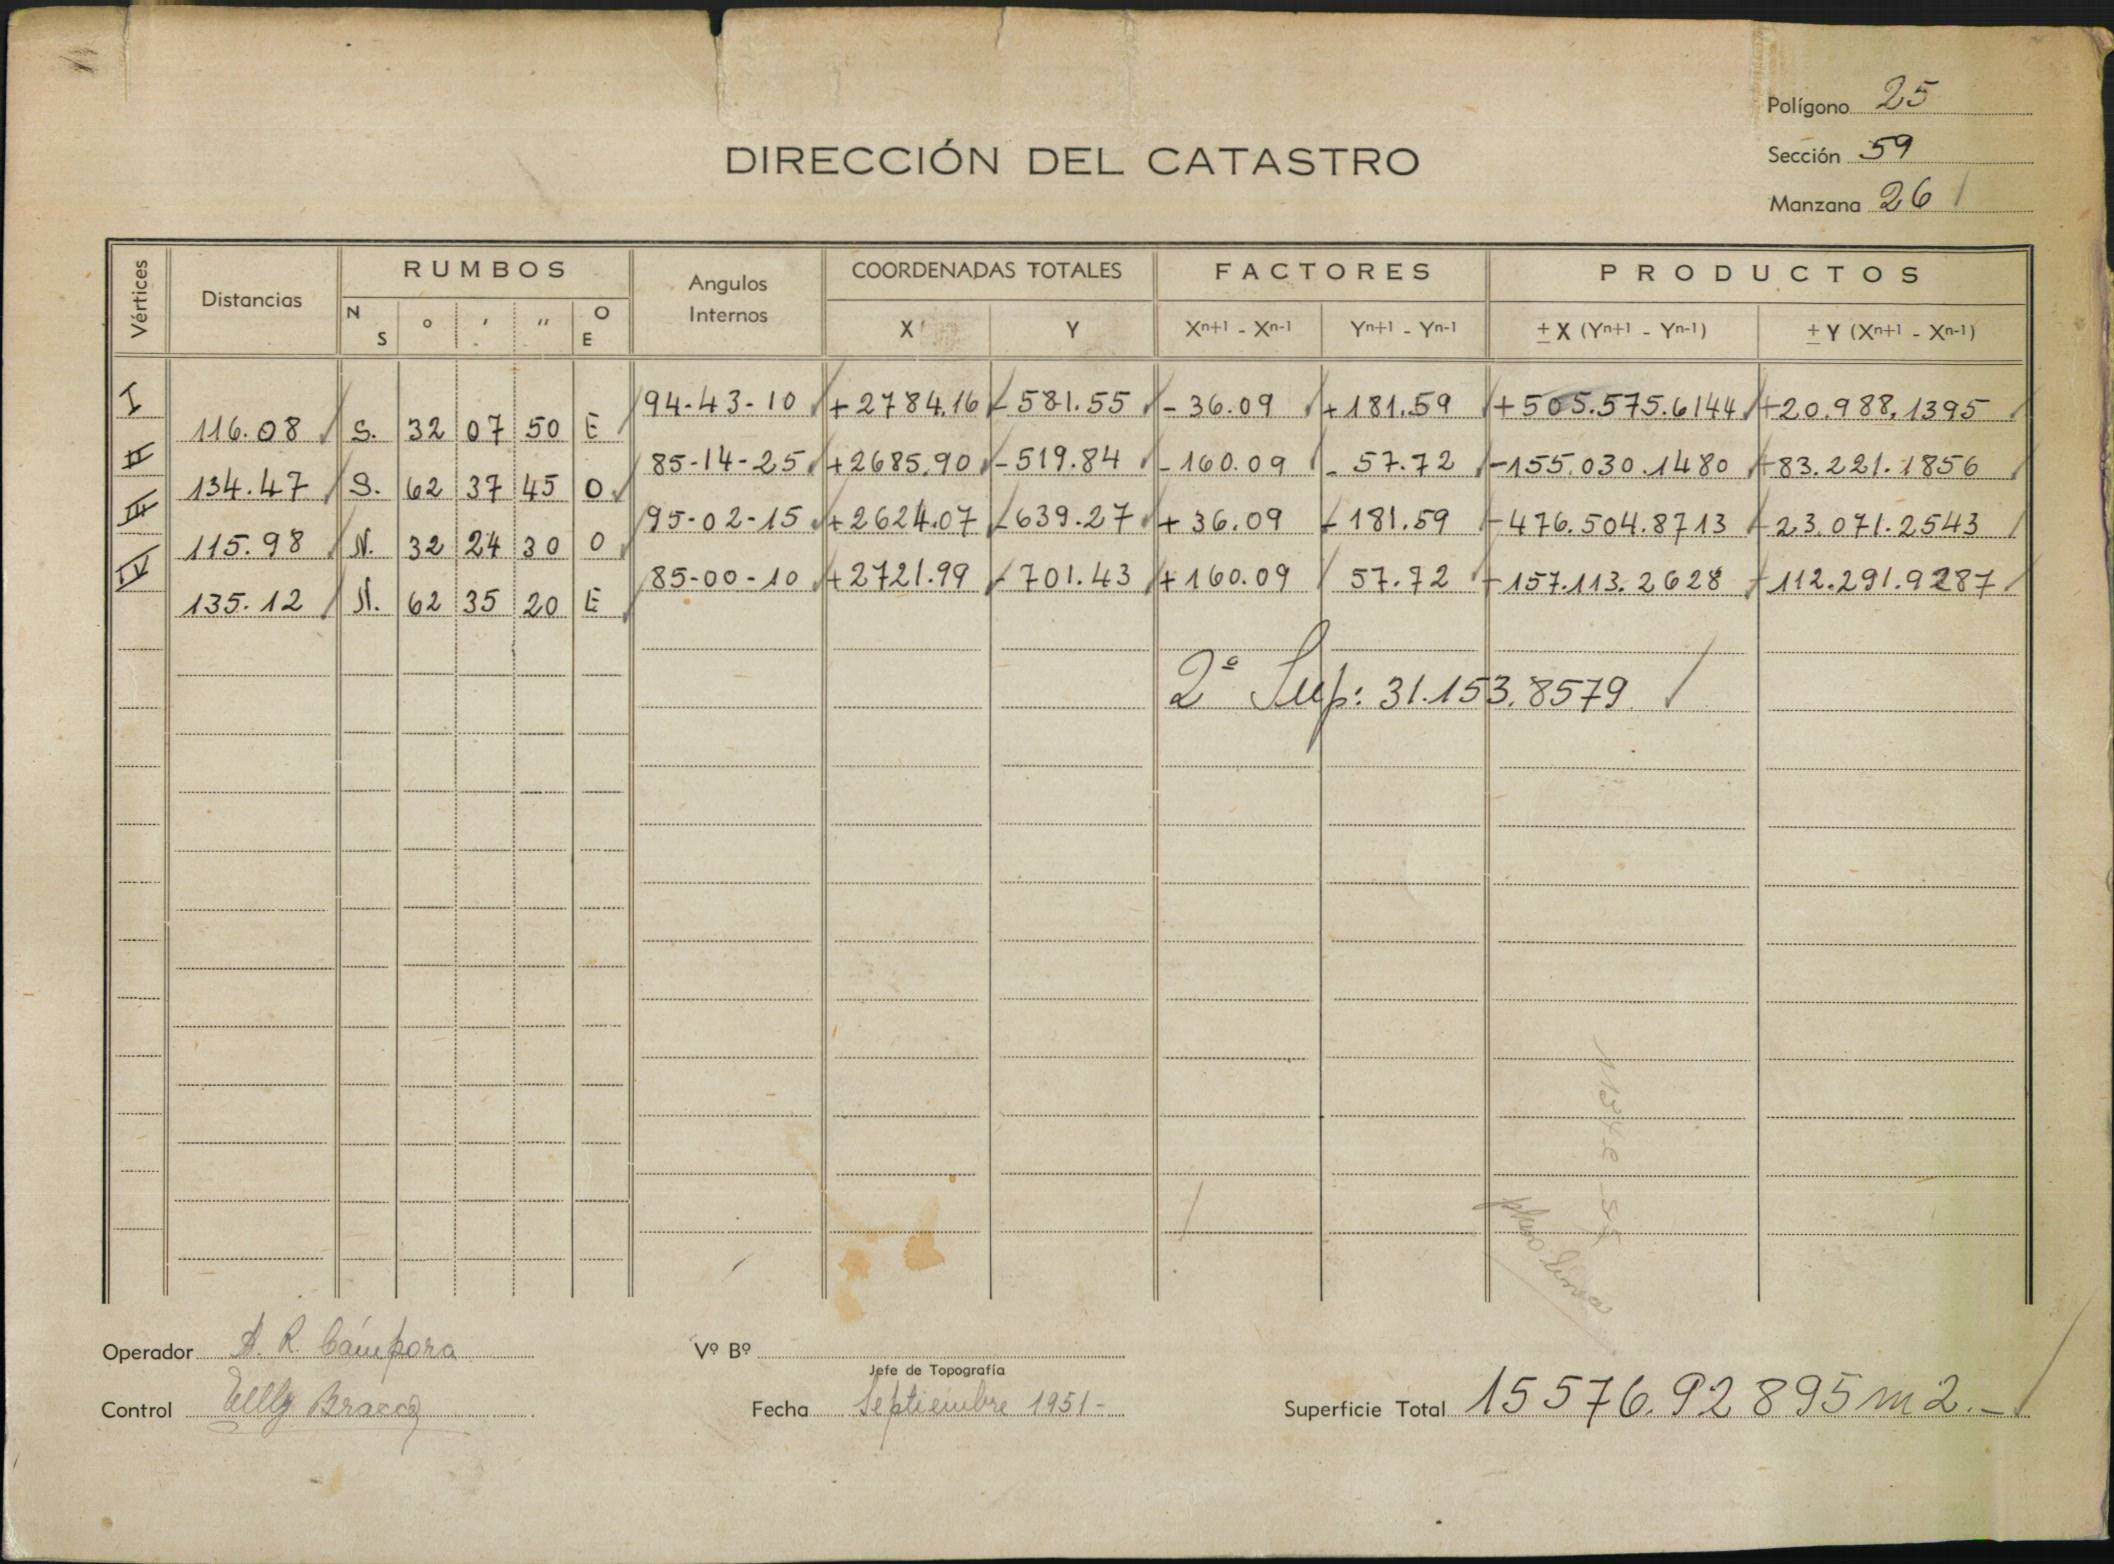 Polígono 25
DIRECCIÓN DEL CATASTRO
Sección 59
Manzana 26
Vértices Distancias RUMBOS Angulos Internos COORDENADAS TOTALES FACTORES PRODUCTOS
N S ° ' '' O E X Y Xn+1 - Xn-1 Yn+1 - Yn-1 ± X (Yn+1 - Yn-1) ± Y (Xn+1 - Xn-1)
I 94-43-10 +2784.16 -581.55 -36.09 +181.59 +505.575.6144 +20.988.1395
116.08 S. 32 07 50 E
II 85-14-25 +2685.90 -519.84 -160.09 - 57.72 -155.030.1480 +83.221.1856
134.47 S. 62 37 45 O
III 95-02-15 +2624.07 -639.27 +36.09 -181.59 -476.504.8713 -23.071.2543
115.98 N. 32 24 30 O
IV 85-00-10 +2721.99 -701.43 +160.09 57.72 +157.113.2628 -112.291.9287
135.12 N. 62 35 20 E
2ª Sup: 31.153.8579
Operador A. R. Cámpora
Vº Bº
Jefe de Topografía
Control
Fecha Septiembre 1951-
Superficie Total 15576.92895 m2.-